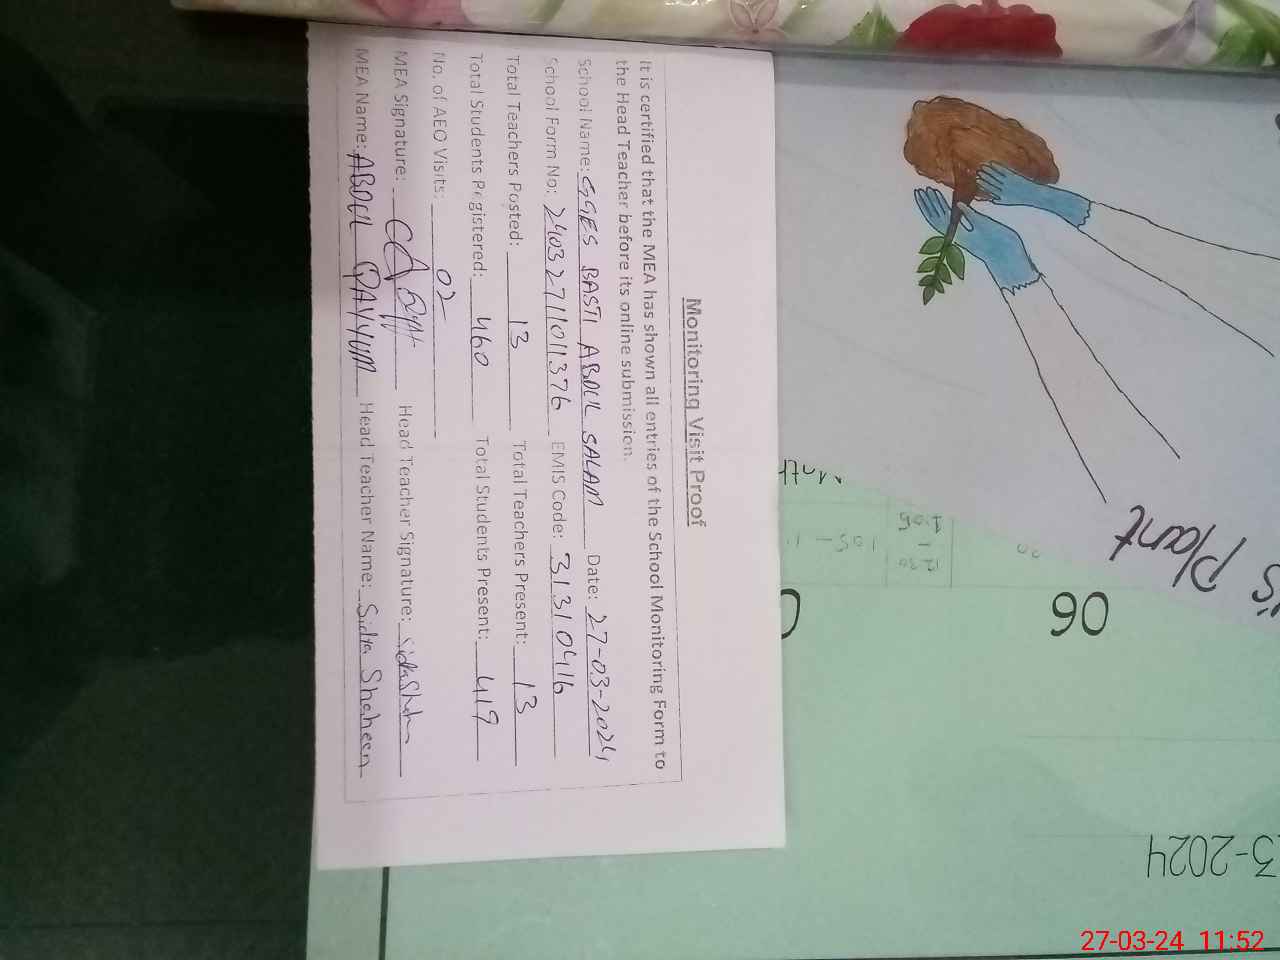 Monitoring Visit Proof
It is certified that the MEA has shown all entries of the School Monitoring Form to
the Head Teacher before its online submission.
School Name: GGES BASTI ABDUL SALAM Date: 27-03-2024
School Form No: 24032711011376 EMIS Code: 31310416
Total Teachers Posted: 13 Total Teachers Present: 13
Total Students Registered: 460 Total Students Present: 419
No. of AEO Visits: 02
MEA Signature: Head Teacher Signature:
MEA Name: ABDUL QAYYUM Head Teacher Name: Sidra Shaheen
Plant
06
12:30
-
1:05
3-2024
27-03-24 11:52